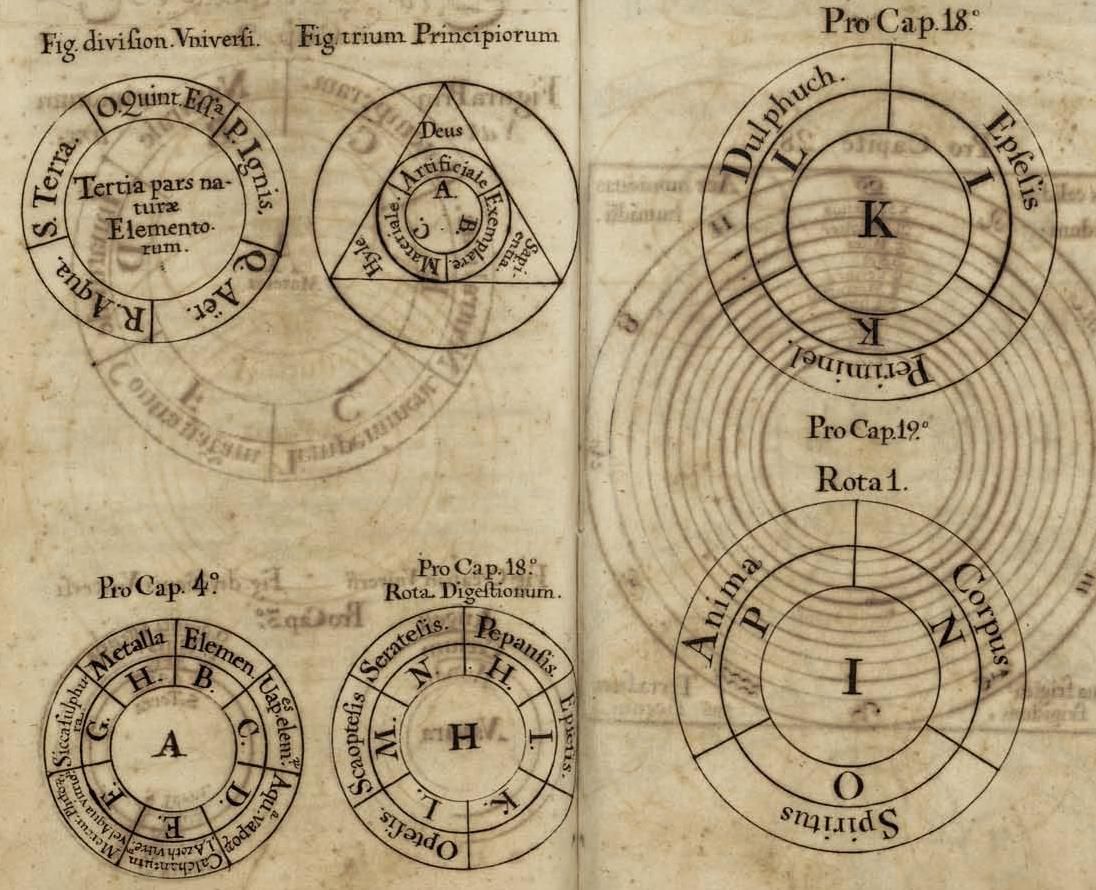 Fig. division. Vniversi.
O. Quint. Essa.
P. Ignis.
Q. Aër.
R. Aqua.
S. Terra.
Tertia pars na-
turæ
Elemento-
rum.
Fig trium Principiorum
Deus
Sapi-
entia.
Hyle
Artificiale
Exemplare.
Materiale.
A.
B.
C.
Pro Cap. 4.º
Metalla
Elemen
Aqu. vapor
Calchantum
H.
B.
C.
D.
E.
F.
G.
A
Pro Cap. 18.º
Rota Digestionum.
Seratesis.
Pepansis.
Epsesis.
Optesis.
Scaoptesis
N.
H.
I.
K.
L.
M.
H
Pro Cap. 18.º
Dulphuch.
Epsesis
Periminel.
L
I
K
K
Pro Cap. 19.º
Rota 1.
Anima
Corpus
Spiritus
P
N
O
I